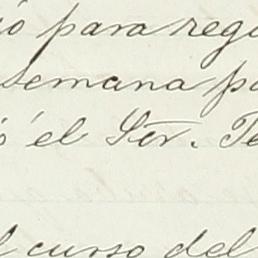 ó para rega
semana pa
ó el Sér. Te
l curso del